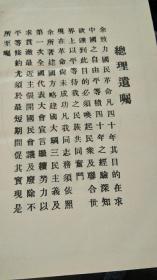 總理遺囑
余致力國民革命凡四十年其目的在求
中國之自由平等積四十年之經驗深知
欲達到此目的必須喚起民眾及聯合世
界上以平等待我之民族共同奮鬥
現在革命尚未成功凡我同志務須依照
余所著建國方略建國大綱三民主義及
第一次全國代表大會宣言繼續努力以
求貫徹最近主張開國民會議及廢除不
平等條約尤須於最短期間促其實現是
所至囑